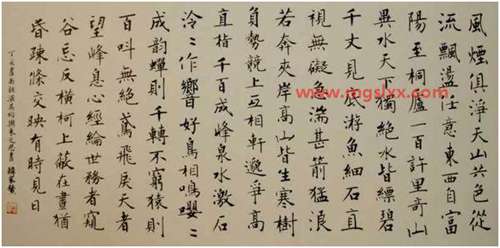 風煙俱淨天山共色從
流飄盪任意東西自富
陽至桐廬一百許里奇山
異水天下獨絕水皆縹碧
千丈見底游魚細石直
視無礙急湍甚箭猛浪
若奔夾岸高山皆生寒樹
負勢競上互相軒爭高
直指千百成峰泉水激石
泠〻作響好鳥相鳴嚶〻
成韻蟬則千轉不窮猿則
百叫無絕鳶飛戾天者
望峰息心經綸世務者窺
谷忘反橫柯上蔽在晝猶
昏疎條交映有時見日
www.mgslxx.com